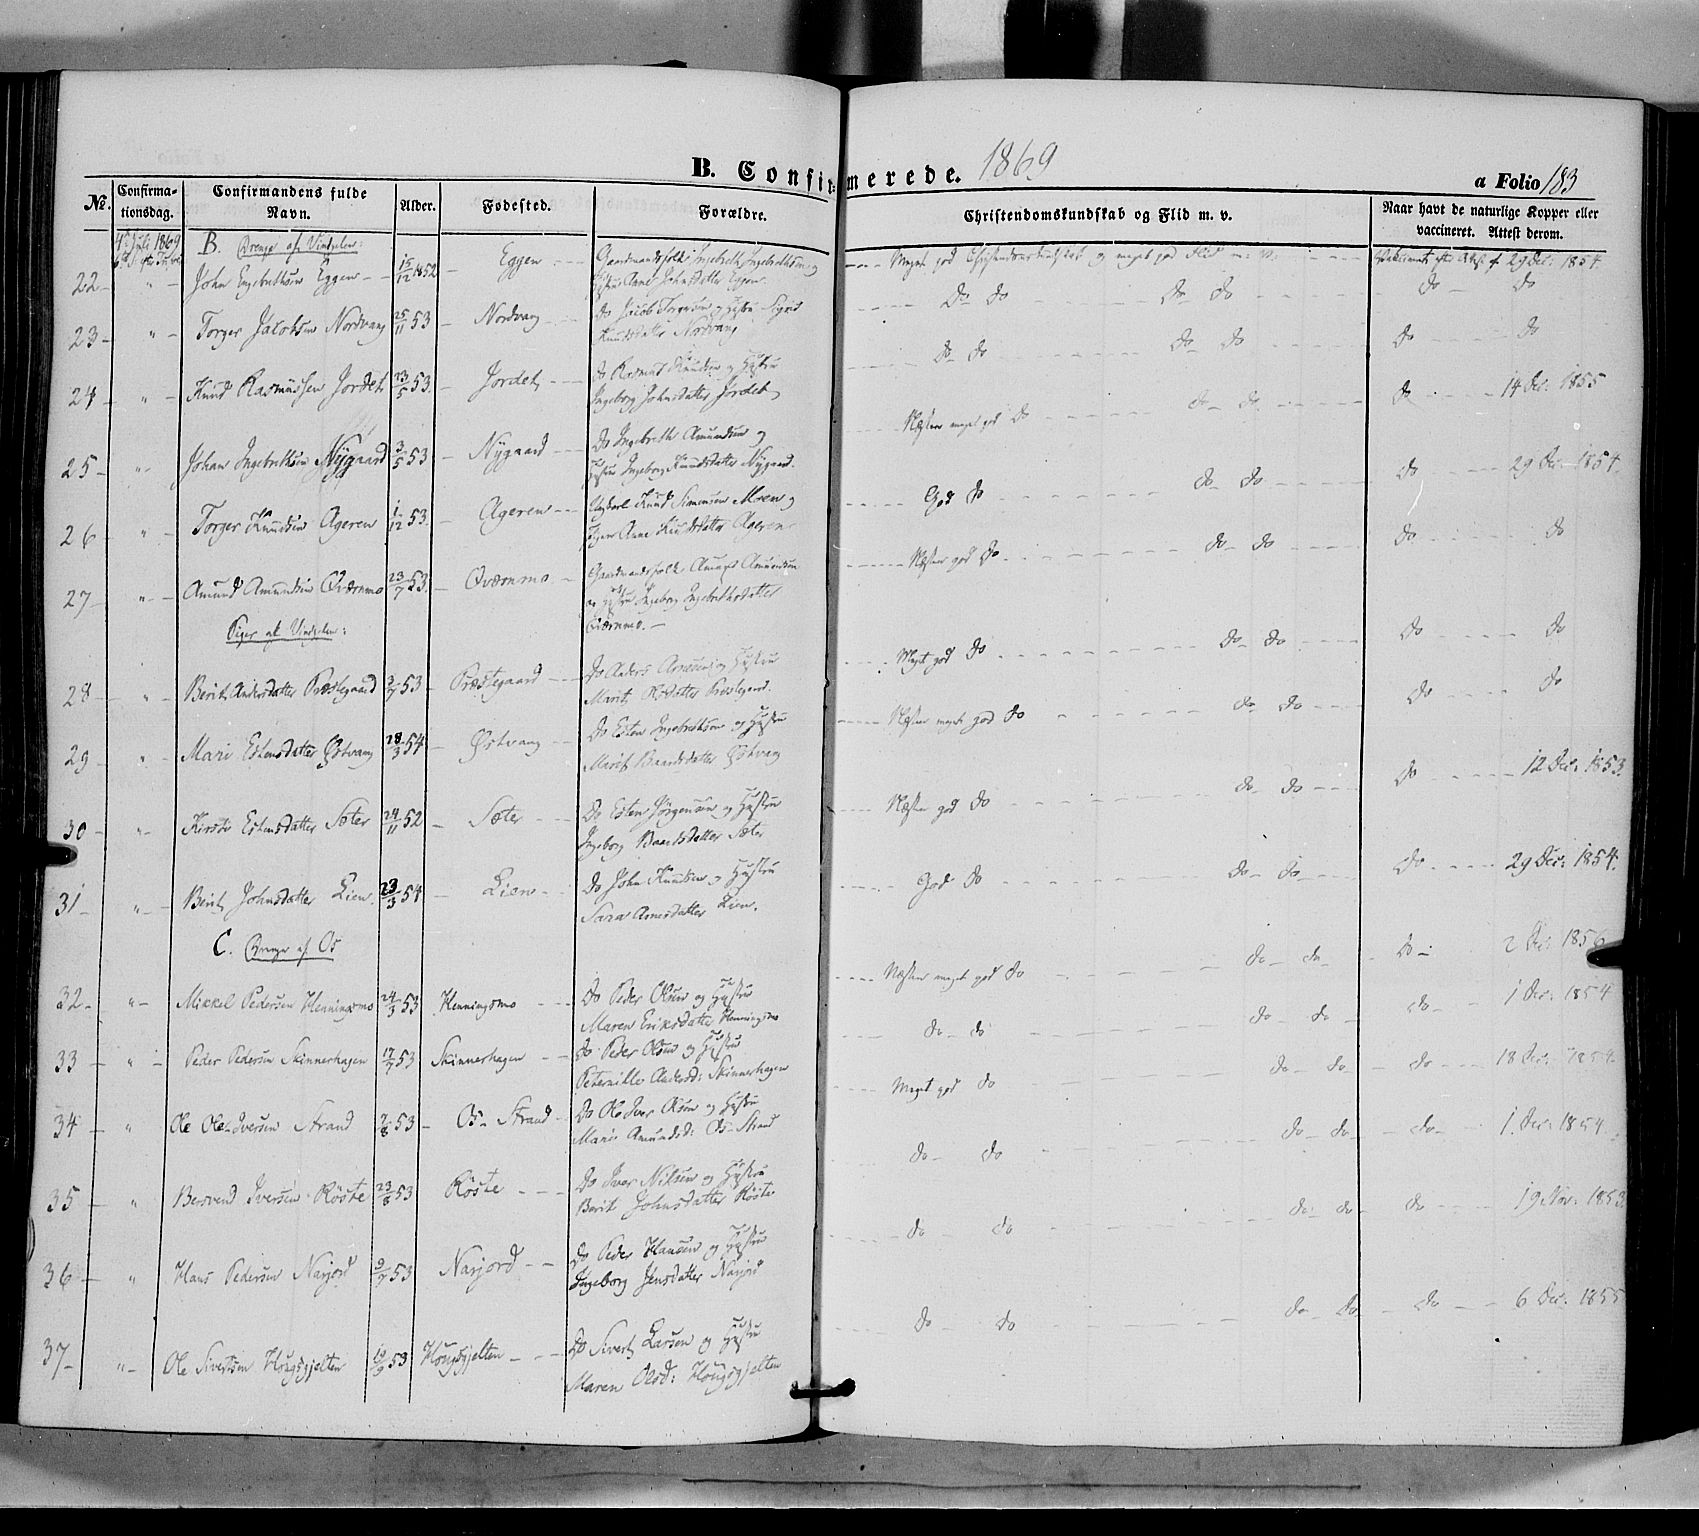 B. Confirmerede. 1869
a Folio 183
No. Confirmationsdag. Confirmandens fulde Navn. Alder. Fødested. Forældre. Christendomskundskab og Flid m. v. Naar havt de naturlige Kopper eller vaccineret. Attest derom.
4de Juli 1869
B. Drenge af Vingelen:
22 - " - John Ingebrethsen Eggen - - 15/12 1852 - Eggen - - Gaardmandsfolk Ingebreth Ingebrethsen og
Hustru Anne Johnsdatter Eggen. Meget god Christendomskundskab og meget god Flid m: v: 29 Dec: 1854.
23 - " - Torger Jacobsen Nordvang 25/11 53 - Nordvang Do Jacob og Hustru Sigrid
Knudsdatter Nordvang Do Do Do Do Do Do
24 - " - Knud Rasmussen Jordet 23/5 53. - Jordet - - Do Rasmus Knudsen og Hustru
Ingeborg Johnsdatter Jordet Do Do Do Do Do Do
25 - " - Johan Ingebrethsen Nygaard 3/5 53 - Nygaard - - Do Ingebreth Amundsen og
Hustru Ingeborg Knudsdatter Nygaard. Næsten meget god Do Do Do Do 14 Dec: 1855
26 - " Torger Knudsen Ageren 1/12 53. - Ageren - - Ungkarl Knud Simensen Moen og
Pigen Anne Knudsdatter Ageren God Do Do Do Do 29 Dec: 1854.
27 - " - Amund Amundsen Qværnmo 23/7 53. - Qværnmo - Gaardmandsfolk Amund Amundsen
og Hustru Ingeborg Ingebrethsdatter
Qværnmo. - Næsten god Do Do Do Do Do
Piger af Vingelen:
28 - " - Berit Andersdatter Præstegaard 2/7 53 - Præstegaard - - Do Anders Arnesen og Hustru
Marit Præstegaard. Meget god Do Do Do Do Do
29 - " - Mari Estensdatter Østvang 28/3 54 - Østvang - - Do Esten Ingebrethsen og Hustru
Marit Baardsdatter Østvang Næsten meget god Do Do Do Do Do
30 - " - Kirsti Estensdatter Sæter 24/11 52 - Sæter - - Do Esten Jörgensen og Hustru
Ingeborg Baardsdatter Sæter Næsten god Do Do Do Do 12 Dec: 1853.
31 - " - Berit Johnsdatter Lien. 23/3 54 - Lien - - Do John Knudsen og Hustru
Sara Arnesdatter Lien. God Do Do Do Do 29 Dec: 1854.
C. Drenge af Os
32 - " - Mikkel Pedersen Henningsmo 24/3 53 Henningsmo - - Do Peder Olsen og Hustru
Maren Eriksdatter Henningsmo Næsten meget god Do Do Do Do 2 Dec: 1856
33 " - Peder Pedersen Skinnerhagen 17/7 53 Skinnerhagen - - Do Peder Olsen og Hustru
Peternille Andersd: Skinnerhagen Do Do Do Do Do 1 Dec: 1854
34 - " Ole Ole-Iversen Strand 7/8 53 - Os-Strand - Do Ole Iver Olsen og Hustru
Mari Amundsd: Os-Strand Meget god Do Do Do Do 18 Dec: 1854.
35 - " Bersvend Iversen Röste 23/8 53 Röste - - - Do Iver Nilsen og Hustru
Berit Johnsdatter Röste Do Do Do Do Do 1 Dec: 1854.
36 - " Hans Pedersen Narjord 9/7 53 Narjord - - Do Peder Hansen og Hustru
Ingeborg Jensdatter Narjord Do Do Do Do Do 19 Nov: 1853.
37 - " - Ole Sivertsen Hougsgjelten 19/9 53 Hougsgjelten - - - Do Sivert Larsen og Hustru
Maren Olsd: Hougsgjelten Do Do Do Do Do 6 Dec: 1855